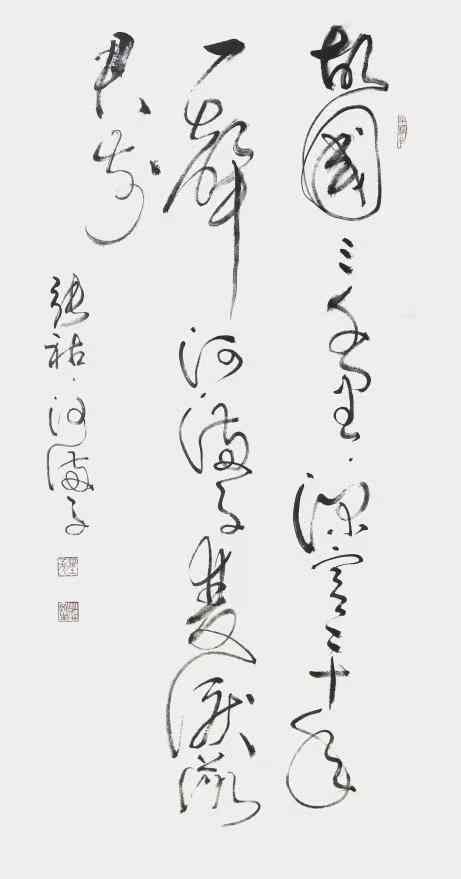 故國三千里深宮二十年
一聲河滿子雙淚落
君前
張祜河滿子